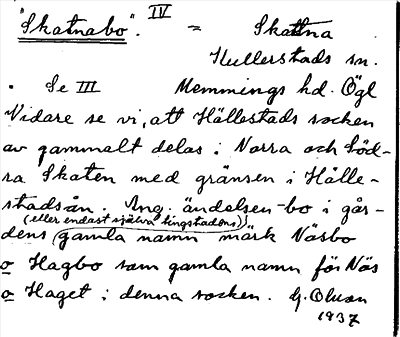 "Skatnabo". IV = Skattna
Hullerstads sn.
. Se III Memmings hd. Ögl
Vidare se vi, att Hällestads socken
av gammalt delas i Norra och Söd-
ra Skaten med gränsen i Hälle-
stadsån. Ang. ändelsen -bo i går-
(eller endast själva tingstadens)
dens gamla namn märk Näsbo
o Hagbo som gamla namn för Näs
o Haget i denna socken. G. Olson
1937